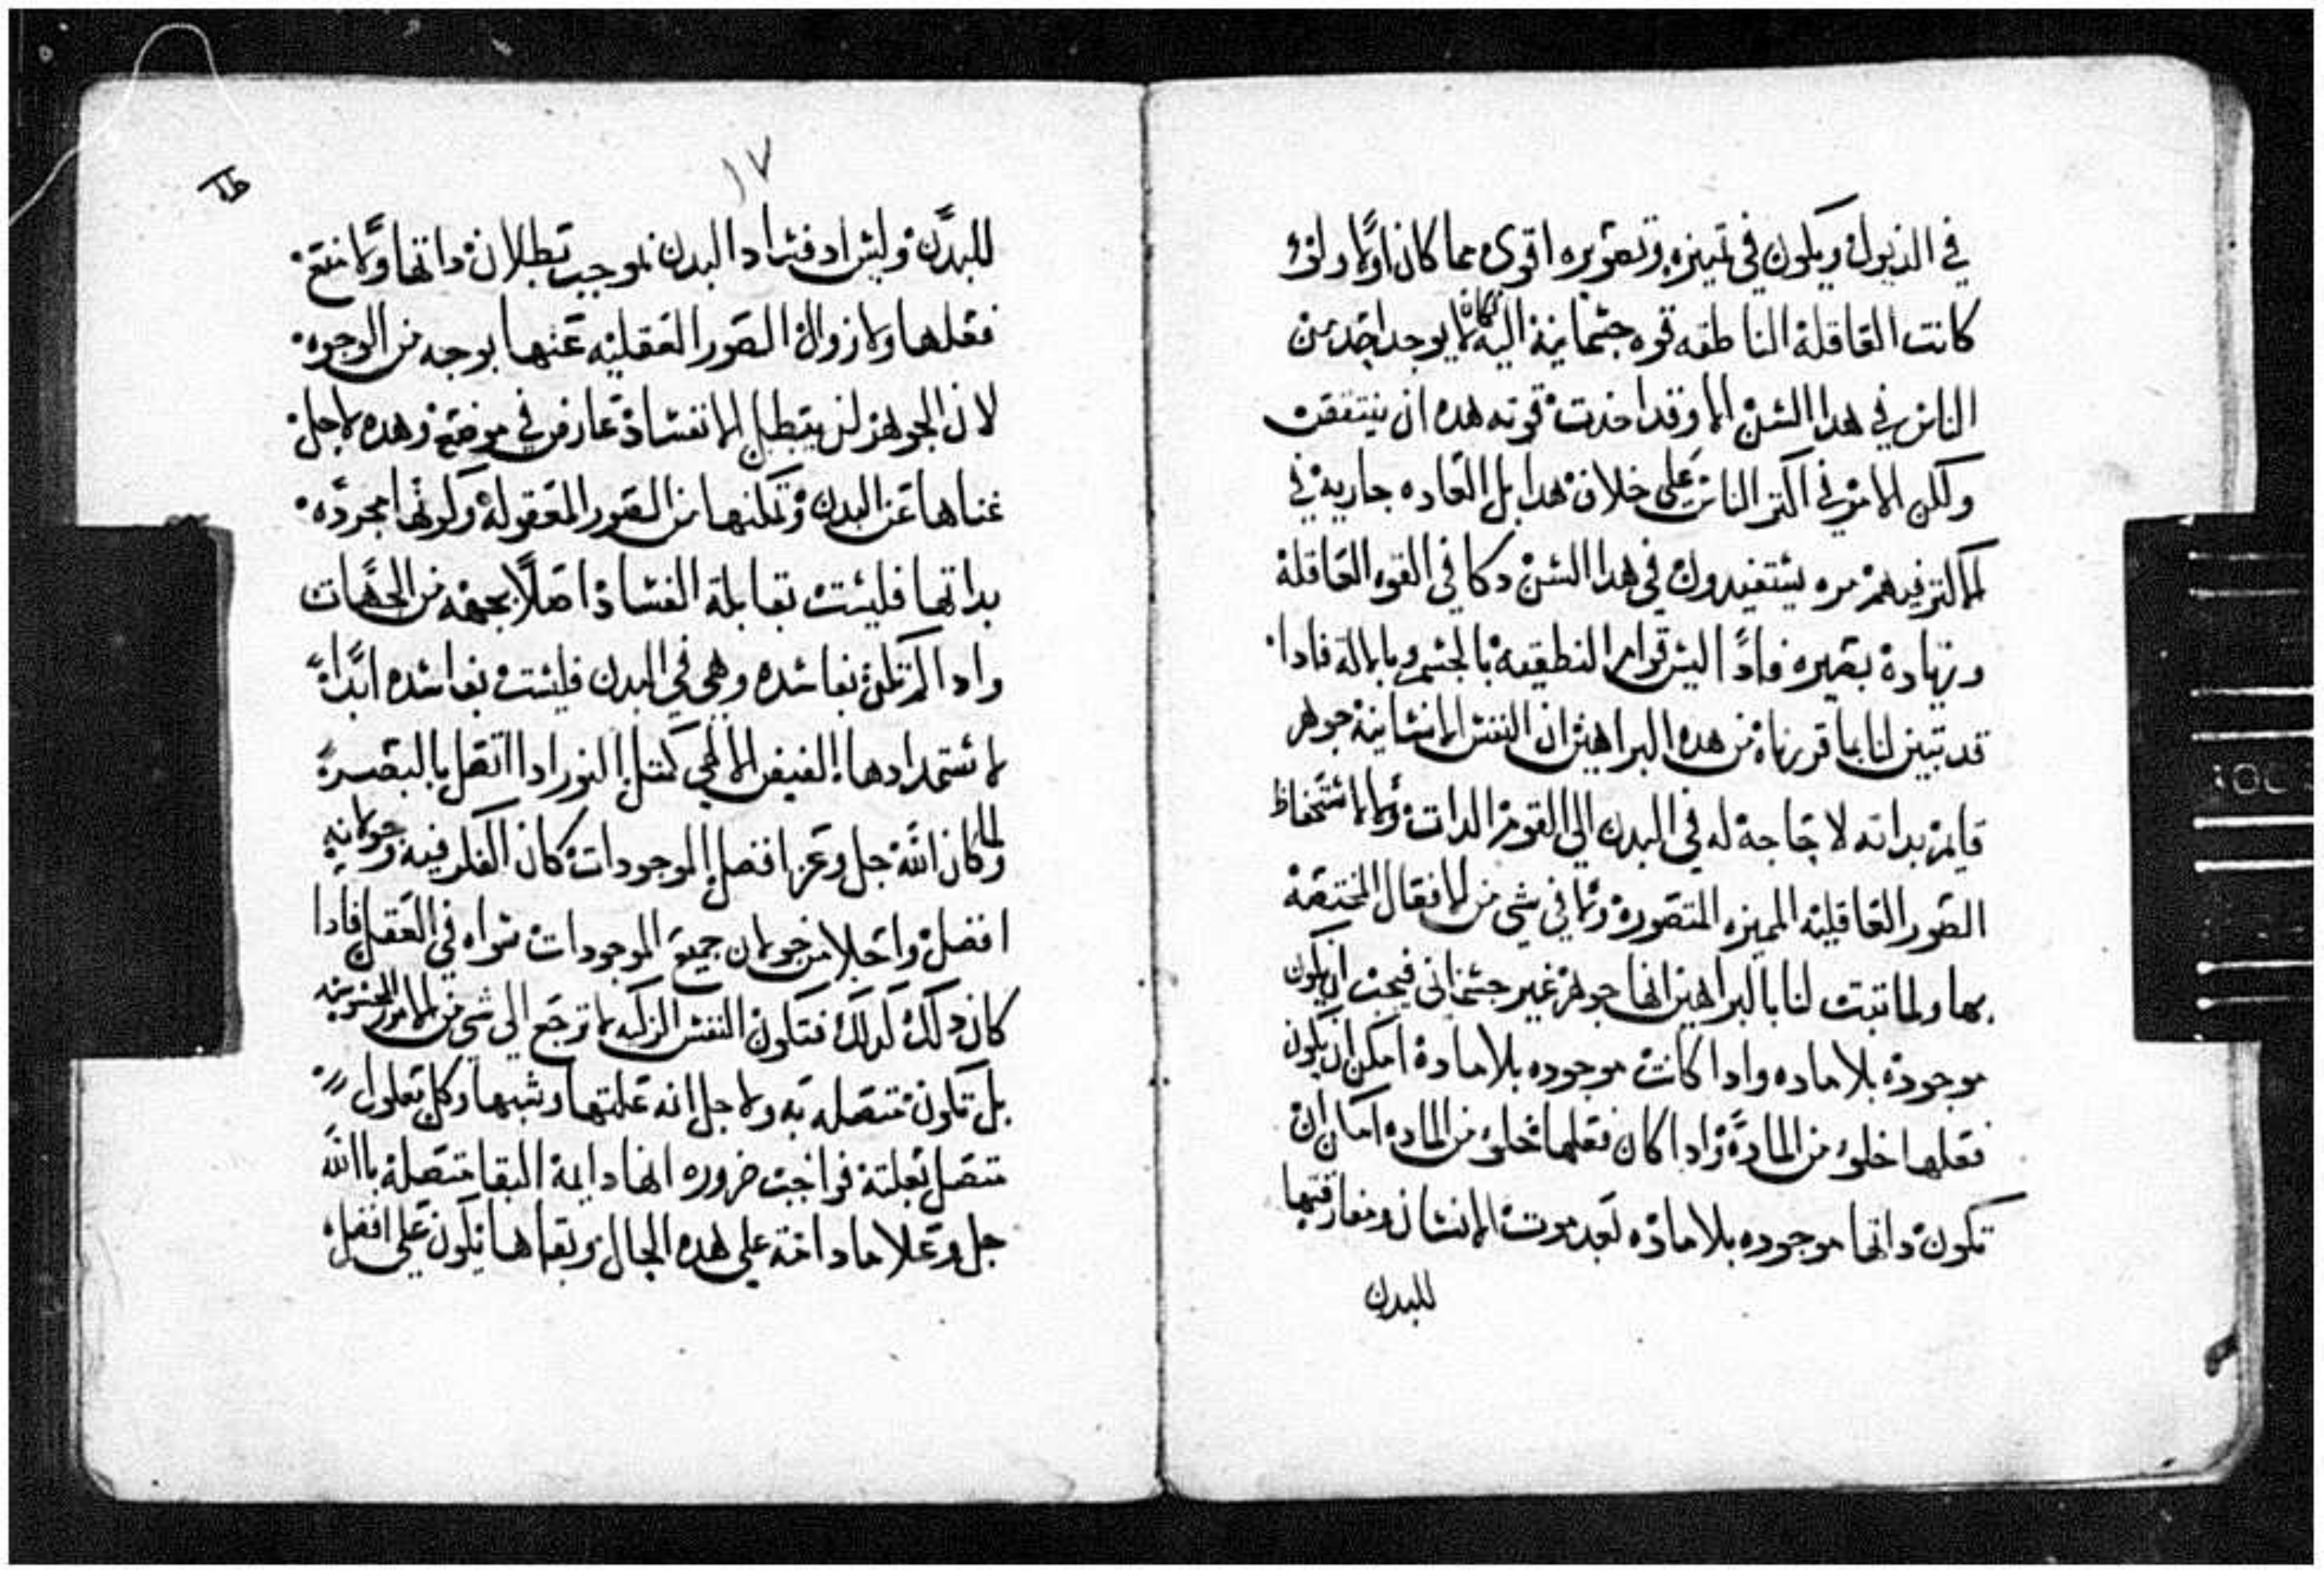 في الذبول ويكون في تميزه وتصويره اقوى مما كان اولا ولو
كانت العاقلة الناطقه قوه جسمانية اليه لكان لا يوجد احد من
الناس في هدا السن الا وقد اخدت قوته هده ان ينتقص
ولكن الامر في اكتر الناس على خلاف هدا بل العاده جارية في
الاكتر فيهم مره يستفيدون في هدا السن دكا في القوه العاقلة
وزيادة بصيره فادًا ليس قوام النطقية بالجسم وبالالة فادا
قد تبين لنا بما قررناه من هده البراهين ان النفس الانسانية جوهر
قايم بداته لا حاجة له في البدن الى القوم الدات ولا لاستحفاظ
الصور العاقلية المميزه المتصورة ولا في شي من الافعال المختصة
بها ولما تبتت لنا بالبراهين انها جوهر غير جسماني فيجب ان يكون
موجودة بلا ماده وادا كانت موجوده بلا مادة امكن ان يكون
فعلها خلو من المادة وادا كان فعلها خلو من الماده امكن ان
تكون داتها موجوده بلا مادة بعد موت الانسان ومفارقتها
للبدن
١٧
للبدن وليس اد فساد البدن بموجب بطلان داتها ولا منع
فعلها ولا زوال الصور العقليه عنها بوجه من الوجوه
لان الجوهر لن يبطل الا بفساد عارض في موضع وهده لاجل
غناها عن البدن وتمكنها من الصور المعقولة وكونها مجرده
بداتها فليست بقابلة الفساد اصلًا بجهه من الجهات
وادا لم تكن بفاسده وهي في البدن فليست بفاسده ابدًا
لاستمدادها الفيض الالهي كمتل النور ادا اتصل بالبصيرة
ولما كان الله جل وعز افضل الموجودات كان الفكر فيه وجولانه
افضل واجلا من جولان جميع الموجودات سواه في العقل فادا
كان دلك كدلك فتكون النفس الزكيه لا ترجع الى شي من الامور
بل تكون متصله به ولاجل انه علتها وشبهها وكل معلول
متصل بعلته فواجب ضروره انها دايمة البقا متصلة باالله
جل وعلا ما دامت على هده الحال وبقاها يكون على افضل